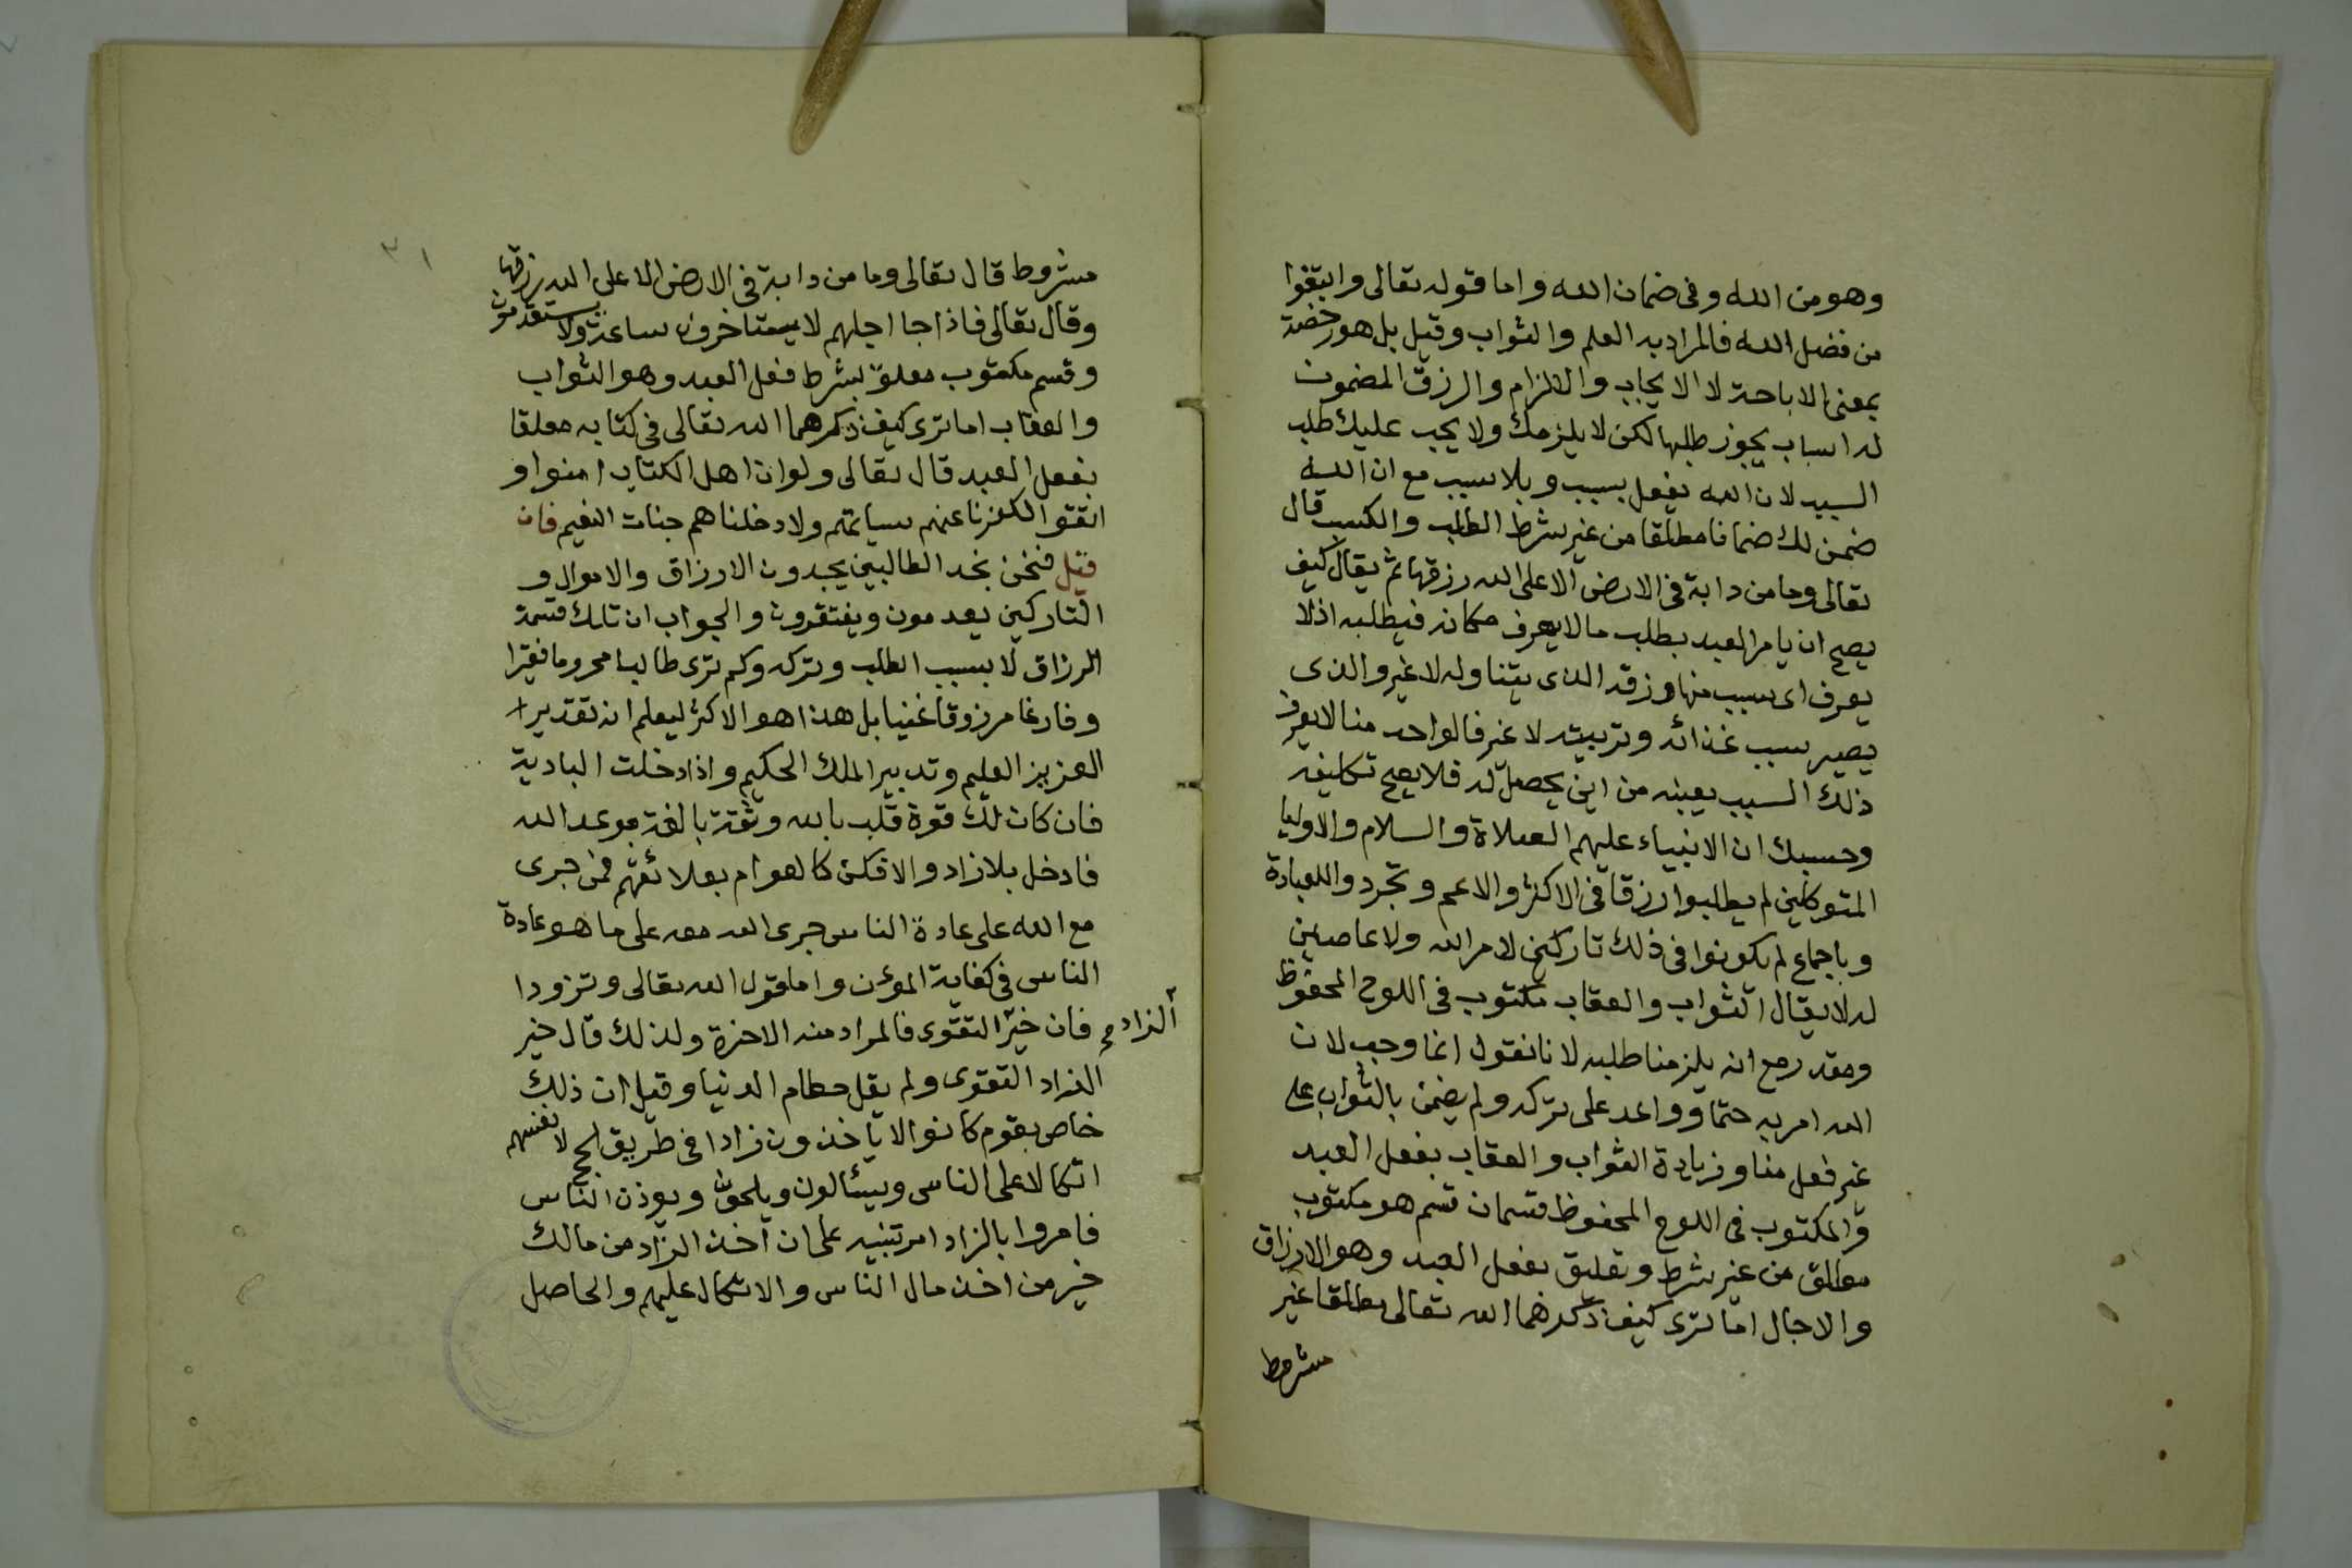 وهو من الله وفى ضمان الله واما قوله تعالى وابتغوا
من فضل الله فالمراد به العلم والثواب وقيل بل هو رخصة
بمعنى الاباحة لا الايجاب والالزام والرزق المضمون
له اسباب يجوز طلبها لكن لا يلزمك ولا يجب عليك طلب
السبب لان الله يفعل بسبب وبلا سبب مع ان الله
ضمن لك ضمانا مطلقا من غير شرط الطلب والكسب قال
تعالى وما من دابة فى الارض الا على الله رزقها ثم يقال كيف
يصح ان يامر العبد بطلب ما لا يعرف مكانه فيطلبه اذ لا
يعرف اى سبب منها رزقه الذى يتناوله لا غير والذى
يصير سبب غذائه وتربيته لا غير فالواحد منا لا يعرف
ذلك السبب بعينه من اين يحصل له فلا يصح تكليفه
وحسبك ان الانبياء عليهم الصلاة والسلام والاوليا
المتوكلين لم يطلبوا رزقا فى الاكثر والاعم وتجردوا للعبادة
وباجماع لم يكونوا فى ذلك تاركين لامر الله ولا عاصين
له لا يقال الثواب والعقاب مكتوب فى اللوح المحفوظ
ومقدر مع انه يلزمنا طلبه لانا نقول انما وجب لان
الله امر به حتما وواعد على تركه ولم يضمن بالثواب على
غير فعل منا وزيادة الثواب والعقاب بفعل العبد
والمكتوب فى اللوح المحفوظ قسمان قسم هو مكتوب
مطلق من غير شرط وتعليق بفعل العبد وهو الارزاق
والاجال اما ترى كيف ذكرهما الله تعالى مطلقا غير
مشروط
٣١
مشروط قال تعالى وما من دابة فى الارض الا على الله رزقها
وقال تعالى فاذا جا اجلهم لا يستاخرون ساعة ولا يستقدمون
وقسم مكتوب معلق بشرط فعل العبد وهو الثواب
والعقاب اما ترى كيف ذكرهما الله تعالى فى كتابه معلقا
بفعل العبد قال تعالى ولو ان اهل الكتاب امنوا و
اتقوا لكفرنا عنهم سياتهم ولادخلناهم جنات النعيم فان
قيل فنحن نجد الطالبين يجدون الارزاق والاموال و
التاركين يعدمون ويفتقرون والجواب ان تلك قسمة
الرزاق لا بسبب الطلب وتركه وكم ترى طالبا محروما فقيرا
وفارغا مرزوقا غنيا بل هذا هو الاكثر ليعلم انه تقدير
العزيز العليم وتدبير الملك الحكيم واذا دخلت البادية
فان كان لك قوة قلب بالله وثقة بالغة بوعد الله
فادخل بلا زاد والا فكن كالعوام بعلائقهم فمن جرى
مع الله على عادة الناس جرى الله معه على ما هو عادة
الناس فى كفاية المؤن واما قول الله تعالى وتزودا
الزاد صح
فان خير التقوى فالمراد منه الاخرة ولذلك قال خير
الزاد التقوى ولم يقل حطام الدنيا وقيل ان ذلك
خاص بقوم كانوا لا ياخذون زادا فى طريق الحج لا نفسهم
اتكالا على الناس ويسئالون ويلحون ويوذن الناس
فامروا بالزاد امر تنبيه على ان أخذ الزاد من مالك
خير من اخذ مال الناس والاتكال عليهم والحاصل